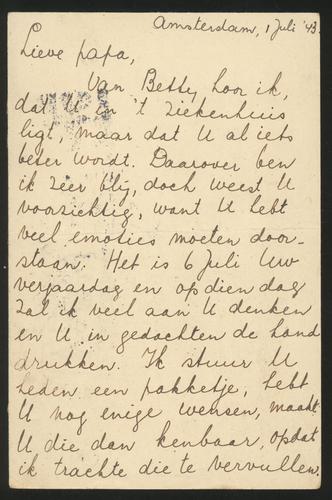 Amsterdam, 1 Juli '43.
Lieve papa,
Van Betty hoor ik,
dat U in 't ziekenhuis
ligt, maar dat U al iets
beter wordt. Daarover ben
ik zeer blij, doch weest U
voorzichtig, want U hebt
veel emoties moeten door-
staan. Het is 6 Juli Uw
verjaardag en op dien dag
zal ik veel aan U denken
en U in gedachten de hand
drukken. Ik stuur U
heden een pakketje, hebt
U nog enige wensen, maakt
U die dan kenbaar, opdat
ik trachte die te vervullen.